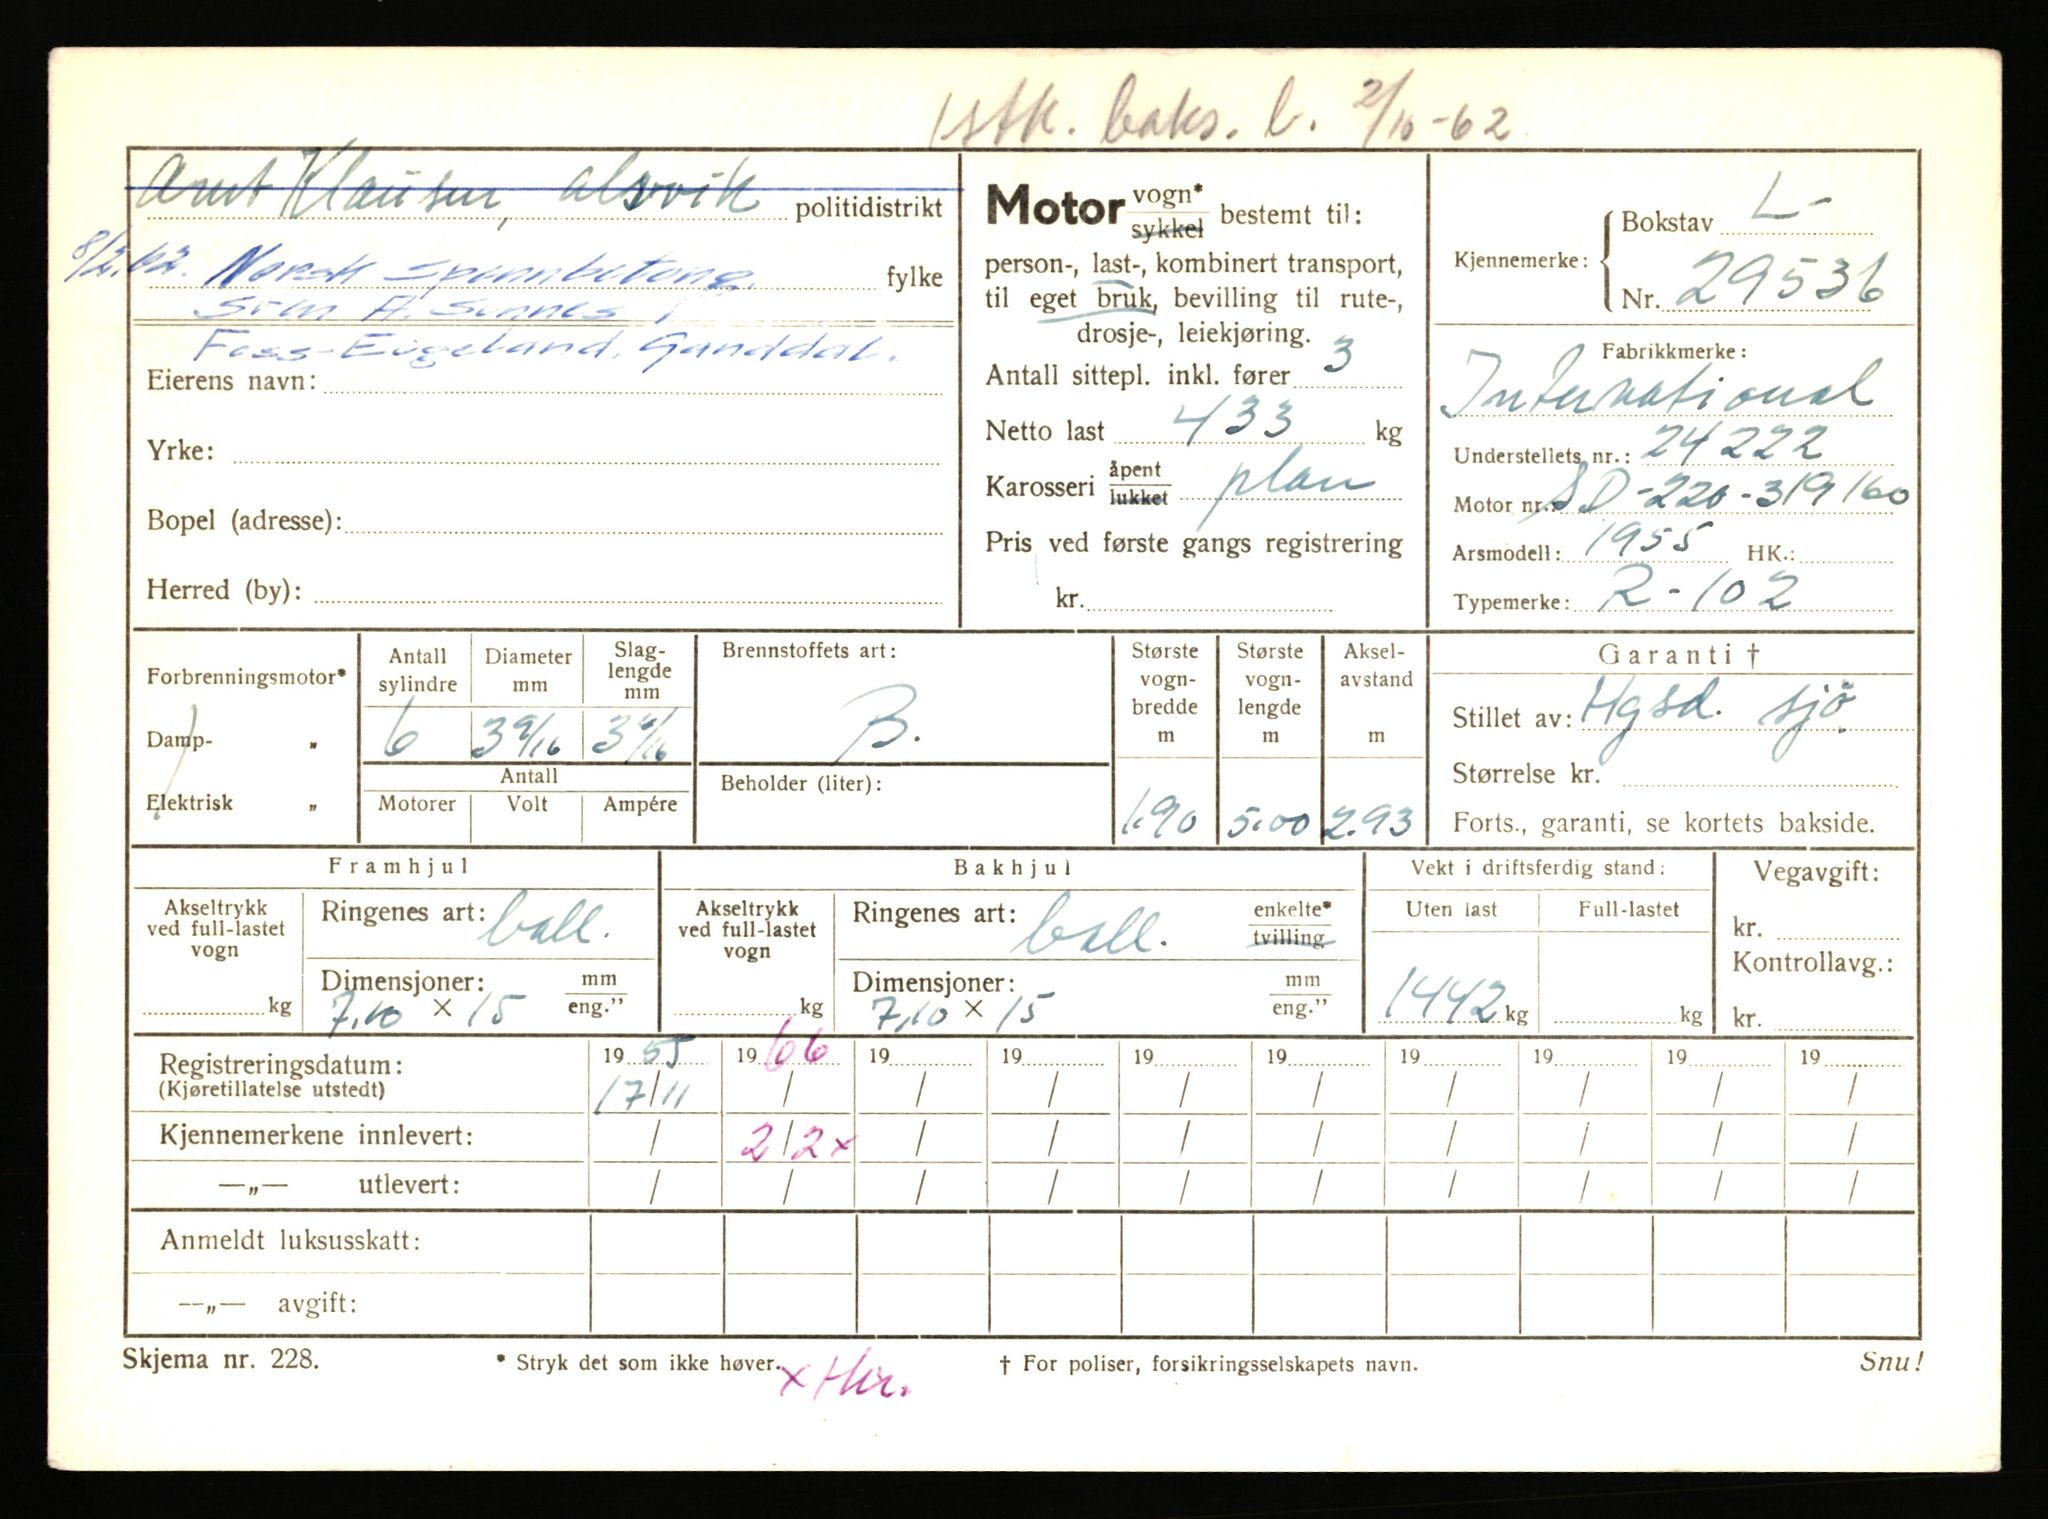 1 stk. baks. l. 2/10-62
Arnt Klausen, Alsvik politidistrikt
8/2.62. Norsk Spennbetong fylke
Svm A. Sunnes
Foss-Eigeland, Ganddal.
Eierens navn:
Yrke:
Bopel (adresse):
Herred (by):
Motor vogn* sykkel bestemt til:
person-, last-, kombinert transport,
til eget bruk, bevilling til rute-,
drosje-, leiekjøring.
Antall sittepl. inkl. fører 3
Netto last 433 kg
Karosseri åpent lukket plan
Pris ved første gangs registrering
kr.
Kjennemerke: Bokstav L-
Nr. 29536
Fabrikkmerke:
International
Understellets nr.: 24222
Motor nr.: SD-220-319160
Arsmodell: 1955 HK.:
Typemerke: R-102
Forbrenningsmotor*
Damp- „
Elektrisk „
Antall sylindre Diameter mm Slag-lengde mm
6 3 9/16 3 11/16
Antall
Motorer Volt Ampére
Brennstoffets art:
B.
Beholder (liter):
Største vogn-bredde m Største vogn-lengde m Aksel-avstand m
1.90 5.00 2.93
Garanti †
Stillet av: Hgsd. sjø
Størrelse kr.
Forts., garanti, se kortets bakside.
Framhjul
Akseltrykk ved full-lastet vogn
kg
Ringenes art: ball.
Dimensjoner: mm eng.”
7,10 × 15
Bakhjul
Akseltrykk ved full-lastet vogn
kg
Ringenes art: ball. enkelte* tvilling
Dimensjoner: mm eng.”
7,10 × 15
Vekt i driftsferdig stand:
Uten last Full-lastet
1442 kg kg
Vegavgift:
kr.
Kontrollavg.:
kr.
Registreringsdatum: 19 55 19 66 19 19 19 19 19 19 19 19
(Kjøretillatelse utstedt) 17/11 / / / / / / / / /
Kjennemerkene innlevert: / 2/2 x / / / / / / / /
—„— utlevert: / / / / / / / / / /
Anmeldt luksusskatt:
—„— avgift:
Skjema nr. 228. * Stryk det som ikke høver. † For poliser, forsikringsselskapets navn. Snu!